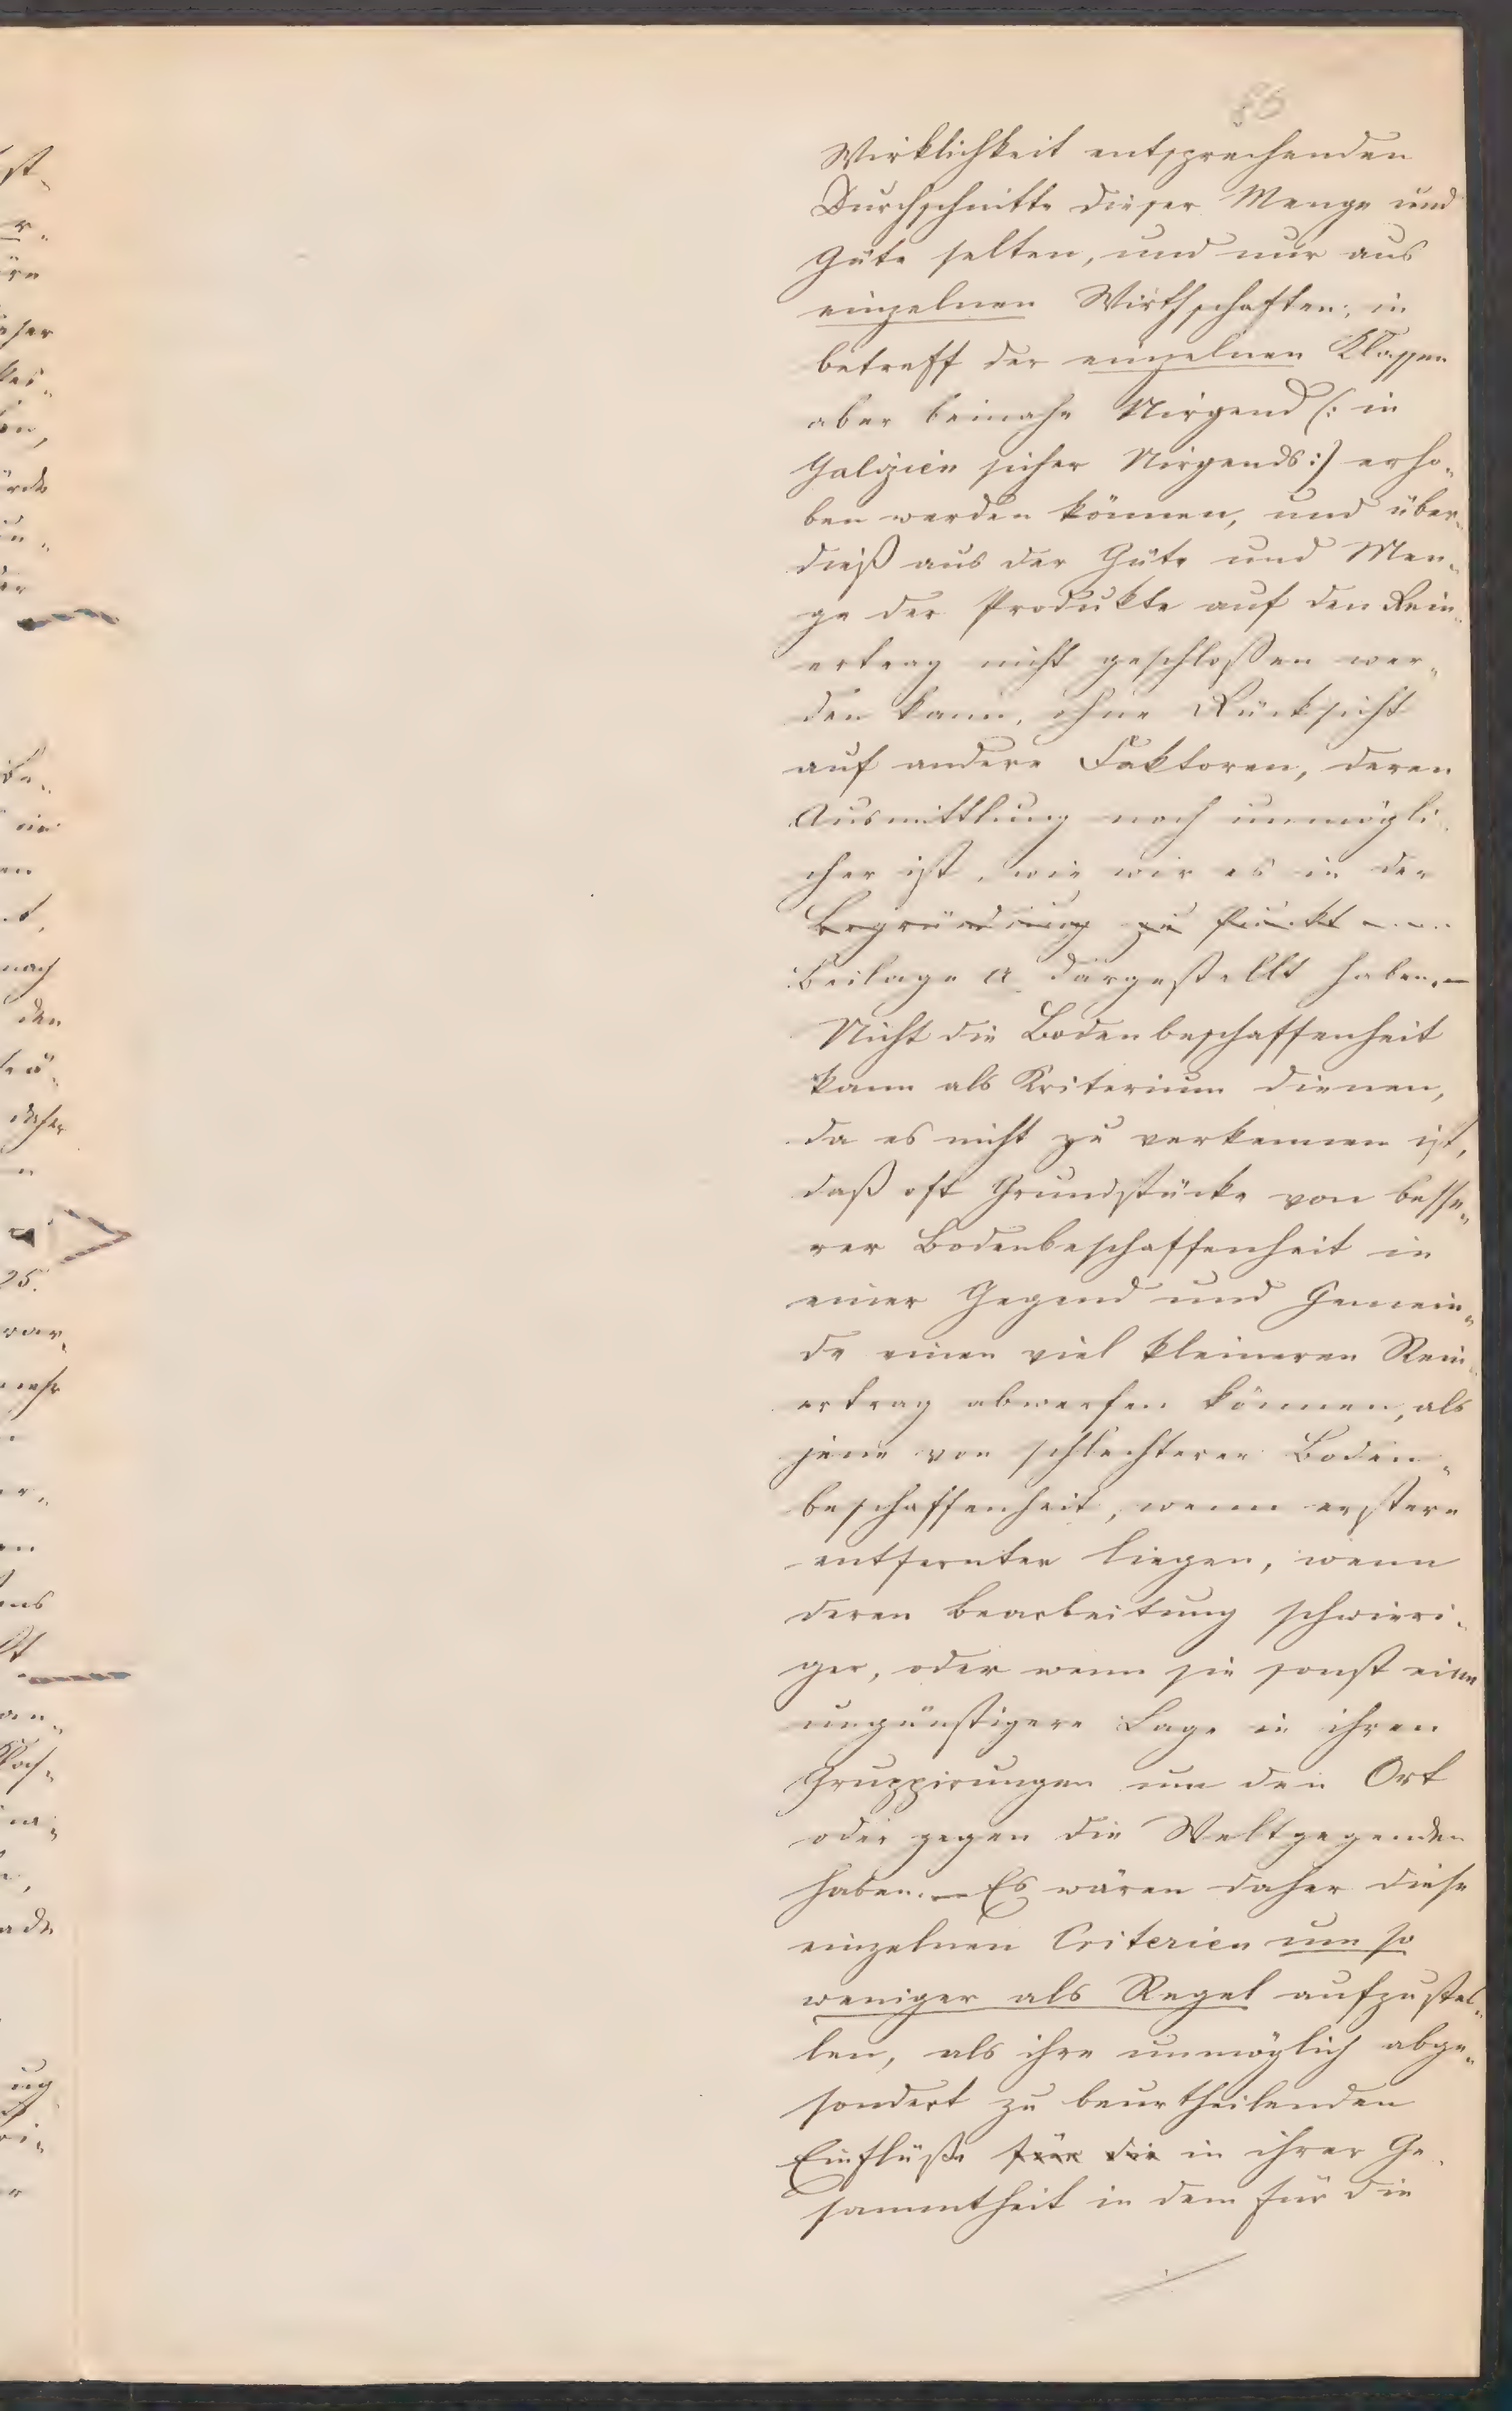 86
Wirklichkeit entsprechenden
Durchschnitte dieser Menge und
Güte selten, und nur aus
einzelnen Wirthschaften, in
betreff der einzelnen Klassen
aber beinahe Nirgend (: in
Galizien sicher Nirgends :) erho„
ben werden können, und über„
dieß aus der Güte und Men„
ge der Produkte auf den Rein„
ertrag nicht geschloßen wer„
den kann, ohne Rücksicht
auf andere Faktoren, deren
Ausmittlung noch unmögli„
cher ist, wie wir es in der
Begründung zu Punkt
Beilage A dargestellt haben. —
Nicht die Bodenbeschaffenheit
kann als Kriterium dienen,
da es nicht zu verkennen ist,
daß oft Grundstücke von besse„
rer Bodenbeschaffenheit in
einer Gegend und Gemein„
de einen viel kleineren Rein„
ertrag abwerfen können, als
jene von schlechterer Boden„
beschaffenheit, wenn erstere
entfernter liegen, wenn
deren Bearbeitung schwieri„
ger, oder wenn sie sonst eine
ungünstigere Lage in ihren
Gruppirungen um den Ort
oder gegen die Weltgegenden
haben. — Es wären daher diese
einzelnen Criterien um so
weniger als Regel aufzustel„
len, als ihre unmöglich abge„
sondert zu beurtheilenden
Einflüße für die in ihrer Ge„
sammtheit in dem für die